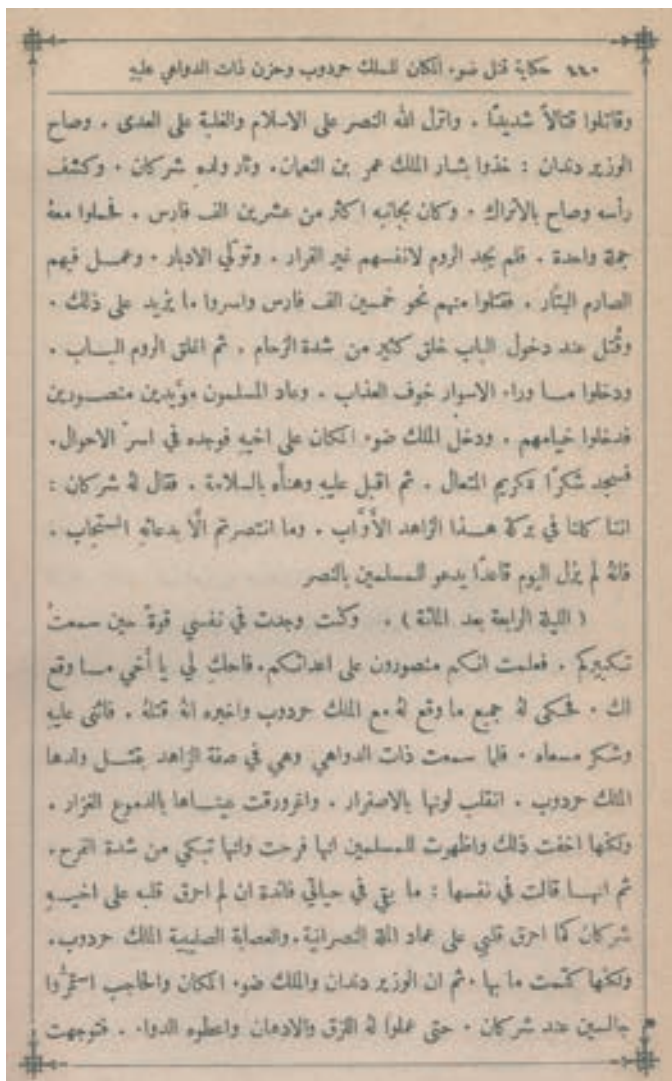 ٤٤٠ حكاية قتل ضوء المكان للملك حردوب وحزن ذات الدواهي عليهِ
وقاتلوا قتالاً شديدًا . وانزل الله النصر على الاسلام والغلبة على العدى . وصاح
الوزير دندان : خذوا بثار الملك عمر بن النعمان . وثار ولده شركان . وكشف
رأسه وصاح بالأتراك . وكان بجانبه اكثر من عشرين الف فارس . فحملوا معهُ
حملة واحدة . فلم يجد الروم لانفسهم غير الفرار . وتولّي الادبار . وعمل فيهم
الصارم البتّار . فقتلوا منهم نحو خمسين الف فارس واسروا ما يزيد على ذلك .
وقُتل عند دخول الباب خلق كثير من شدة الزحام . ثم اغلق الروم الباب .
ودخلوا ما وراء الاسوار خوف العذاب . وعاد المسلمون مؤيدين منصورين
فدخلوا خيامهم . ودخل الملك ضوء المكان على اخيهِ فوجده في اسرّ الاحوال .
فسجد شكرًا للكريم المتعال . ثم اقبل عليهِ وهنأه بالسلامة . فقال لهُ شركان :
اننا كلنا في بركة هذا الزاهد الأوّاب . وما انتصرتم الّا بدعائهِ المستجاب .
فانهُ لم يزل اليوم قاعدًا يدعو للمسلمين بالنصر
( الليلة الرابعة بعد المائة ) . وكنت وجدت في نفسي قوة حين سمعتُ
تكبيركم . فعلمت انكم منصورون على اعدائكم . فاحكِ لي يا أخي ما وقع
لك . فحكى لهُ جميع ما وقع لهُ مع الملك حردوب واخبره انهُ قتلهُ . فاثنى عليهِ
وشكر مسعاه . فلما سمعت ذات الدواهي وهي في صفة الزاهد بقتل ولدها
الملك حردوب . انقلب لونها بالاصفرار . واغرورقت عيناها بالدموع الغزار .
ولكنها اخفت ذلك واظهرت للمسلمين انها فرحت وانها تبكي من شدة الفرح .
ثم انها قالت في نفسها : ما بقي في حياتي فائدة ان لم احرق قلبه على اخيهِ
شركان كما احرق قلبي على عماد الملة النصرانية . والعصابة الصليبية الملك حردوب .
ولكنها كتمت ما بها . ثم ان الوزير دندان والملك ضوء المكان والحاجب استمرُّوا
جالسين عند شركان . حتى عملوا لهُ اللزق والادهان واعطوه الدواء . فتوجهت